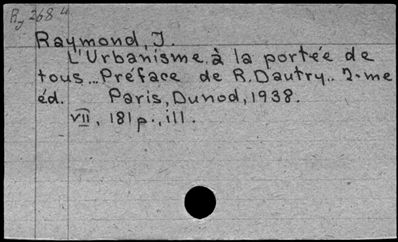 Ry 268 u
Raymond, J.
L'Urbanisme à la portée de
tous... Préface de R. Dautry.. 2.me
éd. Paris, Dunod, 1938.
VII, 181 p., ill.